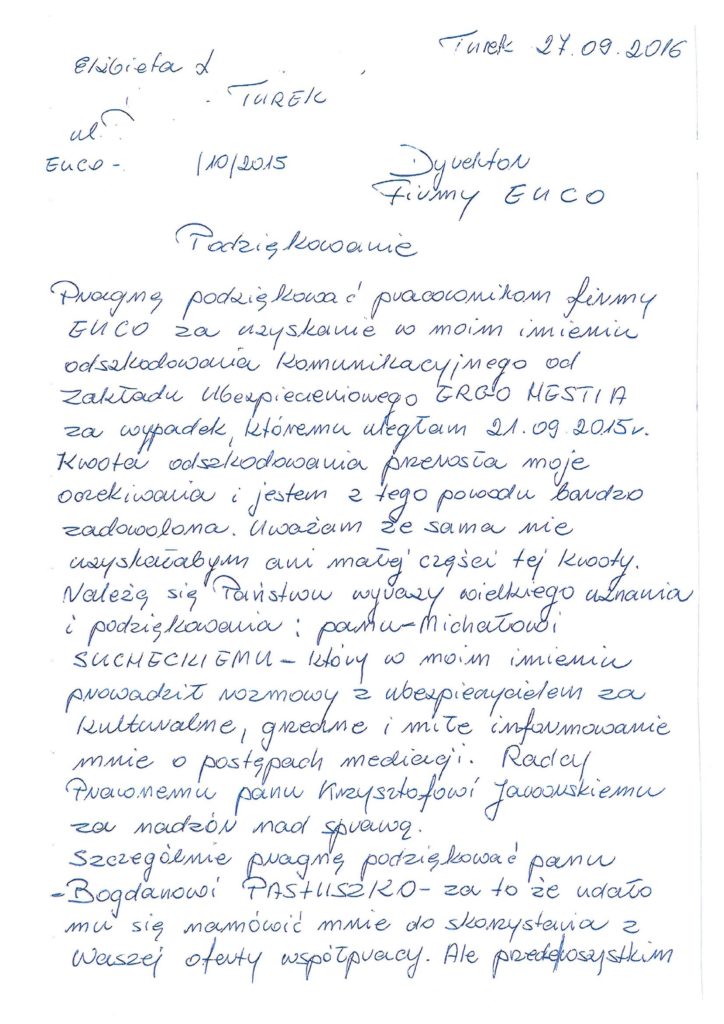 Turek 27.09.2016
Elżbieta
TUREK
ul.
EUCO - /10/2015
Dyrektor
Firmy EUCO
Podziękowanie
Pragnę podziękować pracownikom firmy
EUCO za uzyskanie w moim imieniu
odszkodowania komunikacyjnego od
zakładu Ubezpieceniowego ERGO HESTIA
za wypadek, któremu uległam 21.09.2015r.
Kwota odszkodowania przerosła moje
oczekiwania i jestem z tego powodu bardzo
zadowolona. Uważam że sama nie
uzyskałabym ani małej części tej kwoty.
Należą się Państwu wyrazy wielkiego uznania
i podziękowania: panu - Michałowi
SUCHECKIEMU - który w moim imieniu
prowadził rozmowy z ubezpieczycielem za
kulturalne, grzeczne i miłe informowanie
mnie o postępach mediacji. Radcy
Prawnemu panu Krzysztofowi
za nadzór nad sprawą.
Szczególnie pragnę podziękować panu
- Bogdanowi PASTUSZKO - za to że udało
mu się namówić mnie do skorzystania z
Waszej oferty współpracy. Ale przedewszystkim